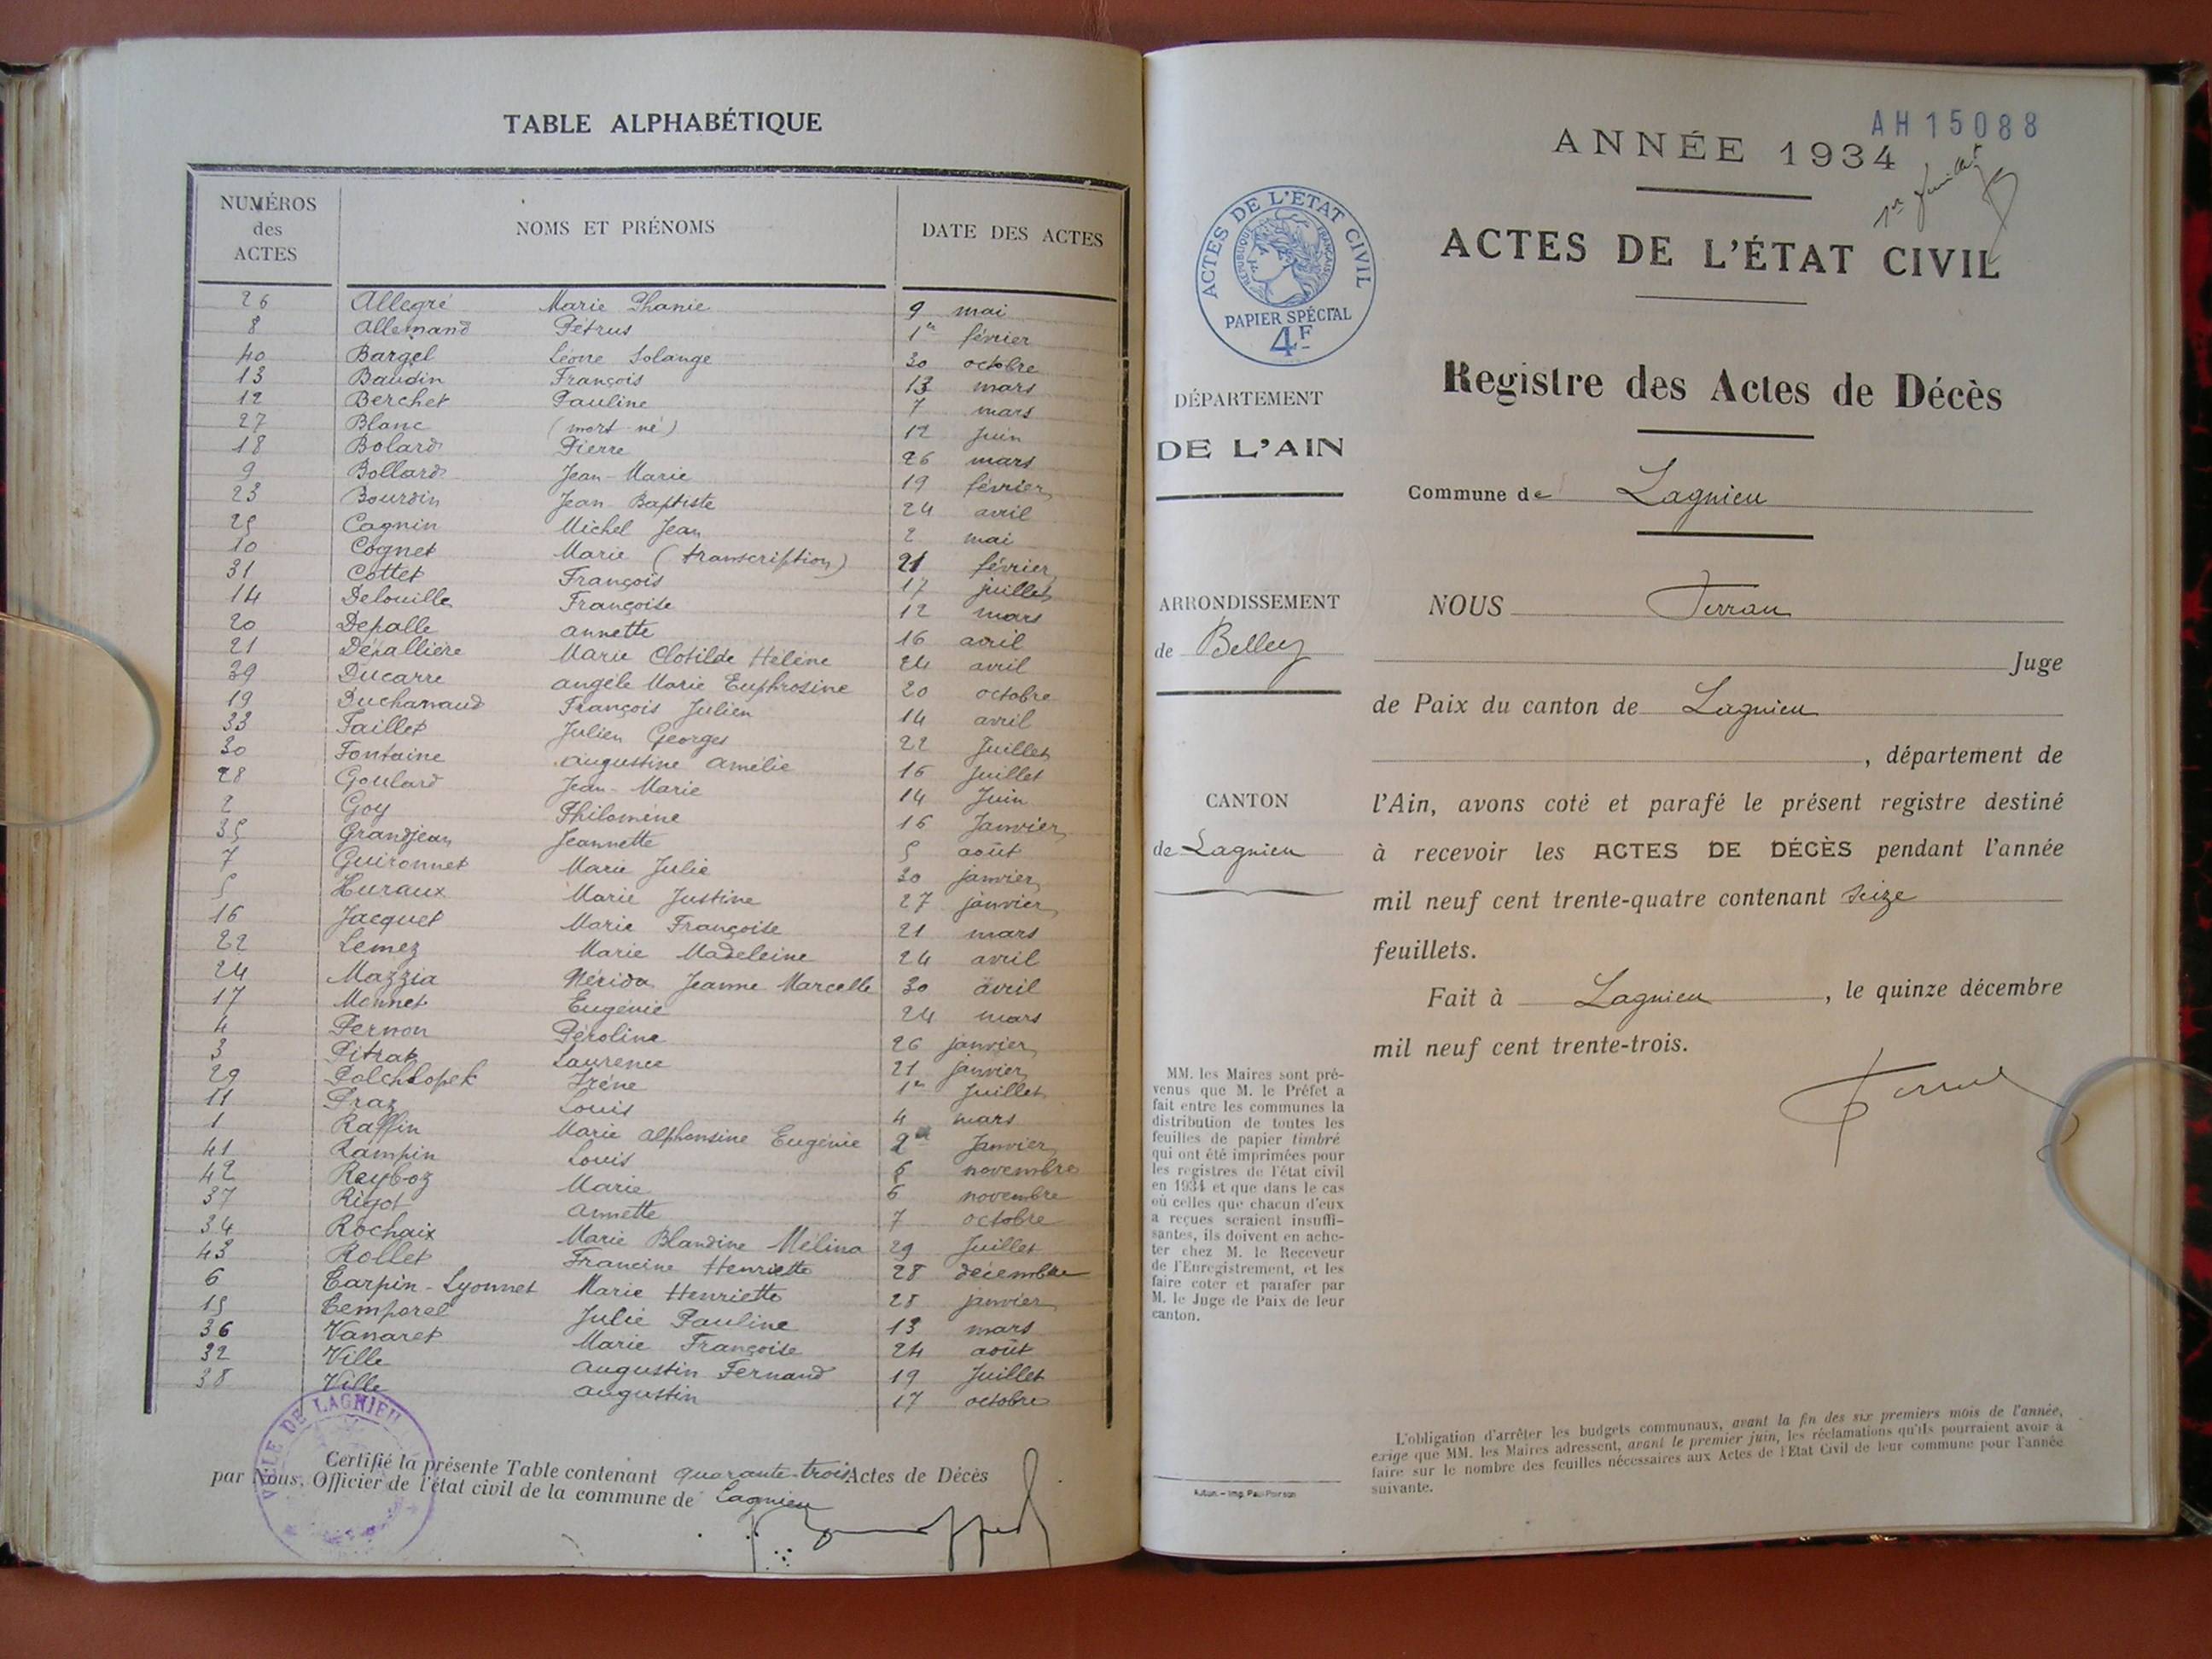 TABLE ALPHABÉTIQUE
NUMÉROS des ACTES NOMS ET PRÉNOMS DATE DES ACTES
26 Allegré Marie Phanie 9 mai
8 Allemand Pétrus 1er février
40 Bargel Léone Solange 30 octobre
13 Baudin François 13 mars
12 Berchet Pauline 7 mars
27 Blanc (mort né) 12 Juin
18 Bolard Pierre 26 mars
9 Bollard Jean-Marie 19 février
23 Bourdin Jean Baptiste 24 avril
25 Cagnin Michel Jean 2 mai
10 Cognet Marie (transcription) 21 février
31 Cottet François 17 juillet
14 Delouille Françoise 12 mars
20 Depalle Annette 16 avril
21 Dépallière Marie Clotilde Hélène 24 avril
39 Ducarre Angèle Marie Euphrosine 20 octobre
19 Ducharnaud François Julien 14 avril
33 Faillet Julien Georges 22 Juillet
30 Fontaine Augustine Amélie 16 Juillet
28 Goulard Jean-Marie 14 Juin
2 Goy Philomène 16 Janvier
35 Grandjean Jeannette 5 août
7 Guironnet Marie Julie 30 janvier
5 Huraux Marie Justine 27 janvier
16 Jacquet Marie Françoise 21 mars
22 Lemez Marie Madeleine 24 avril
24 Mazzia Nérida Jeanne Marcelle 30 avril
17 Monnet Eugénie 24 mars
4 Pernon Péroline 26 janvier
3 Pitrat Laurence 21 janvier
29 Polchlopek Irène 1er Juillet
11 Praz Louis 4 mars
1 Raffin Marie Alphonsine Eugénie 2 Janvier
41 Rampin Louis 5 novembre
42 Reyboz Marie 6 novembre
37 Rigot Annette 7 octobre
34 Rochaix Marie Blandine Mélina 29 Juillet
43 Rollet Francine Henriette 28 décembre
6 Tarpin-Lyonnet Marie Henriette 28 janvier
15 Temporel Julie Pauline 13 mars
36 Vanaret Marie Françoise 24 août
32 Ville Augustin Fernand 19 Juillet
38 Ville Augustin 17 octobre
VILLE DE LAGNIEU
Certifié la présente Table contenant quarante-trois Actes de Décès
par Nous, Officier de l'état civil de la commune de Lagnieu
AH15088
ANNÉE 1934
1er Juillet
ACTES DE L'ÉTAT CIVIL
ACTES DE L'ÉTAT CIVIL
RÉPUBLIQUE FRANÇAISE
PAPIER SPÉCIAL
4F
Registre des Actes de Décès
DÉPARTEMENT
DE L'AIN
Commune de Lagnieu
ARRONDISSEMENT
de Belley
NOUS Ferran
Juge
de Paix du canton de Lagnieu
, département de
CANTON
de Lagnieu
l'Ain, avons coté et parafé le présent registre destiné
à recevoir les ACTES DE DÉCÈS pendant l'année
mil neuf cent trente-quatre contenant seize
feuillets.
Fait à Lagnieu, le quinze décembre
mil neuf cent trente-trois.
MM. les Maires sont pré-
venus que M. le Préfet a
fait entre les communes la
distribution de toutes les
feuilles de papier timbré
qui ont été imprimées pour
les registres de l'état civil
en 1934 et que dans le cas
où celles que chacun d'eux
a reçues seraient insuffi-
santes, ils doivent en ache-
ter chez M. le Receveur
de l'Enregistrement, et les
faire coter et parafer par
M. le Juge de Paix de leur
canton.
L'obligation d'arrêter les budgets communaux, avant la fin des six premiers mois de l'année,
exige que MM. les Maires adressent, avant le premier juin, les réclamations qu'ils pourraient avoir à
faire sur le nombre des feuilles nécessaires aux Actes de l'Etat Civil de leur commune pour l'année
suivante.
Autun. - Imp. Paul Poirson